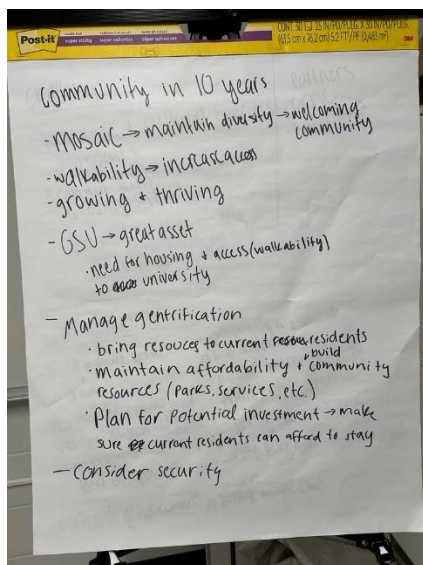 Post-it
super sticky
CONT. 30
(63,5 cm x 76,2 cm)
3M
Community in 10 years
- mosaic → maintain diversity → welcoming
community
- walkability → increase access
- growing + thriving
- GSU → great asset
· need for housing + access (walkability)
to university
- Manage gentrification
· bring resouces to current residents
build
· maintain affordability + community
resources (parks, services, etc.)
· Plan for potential investment → make
sure current residents can afford to stay
- consider security